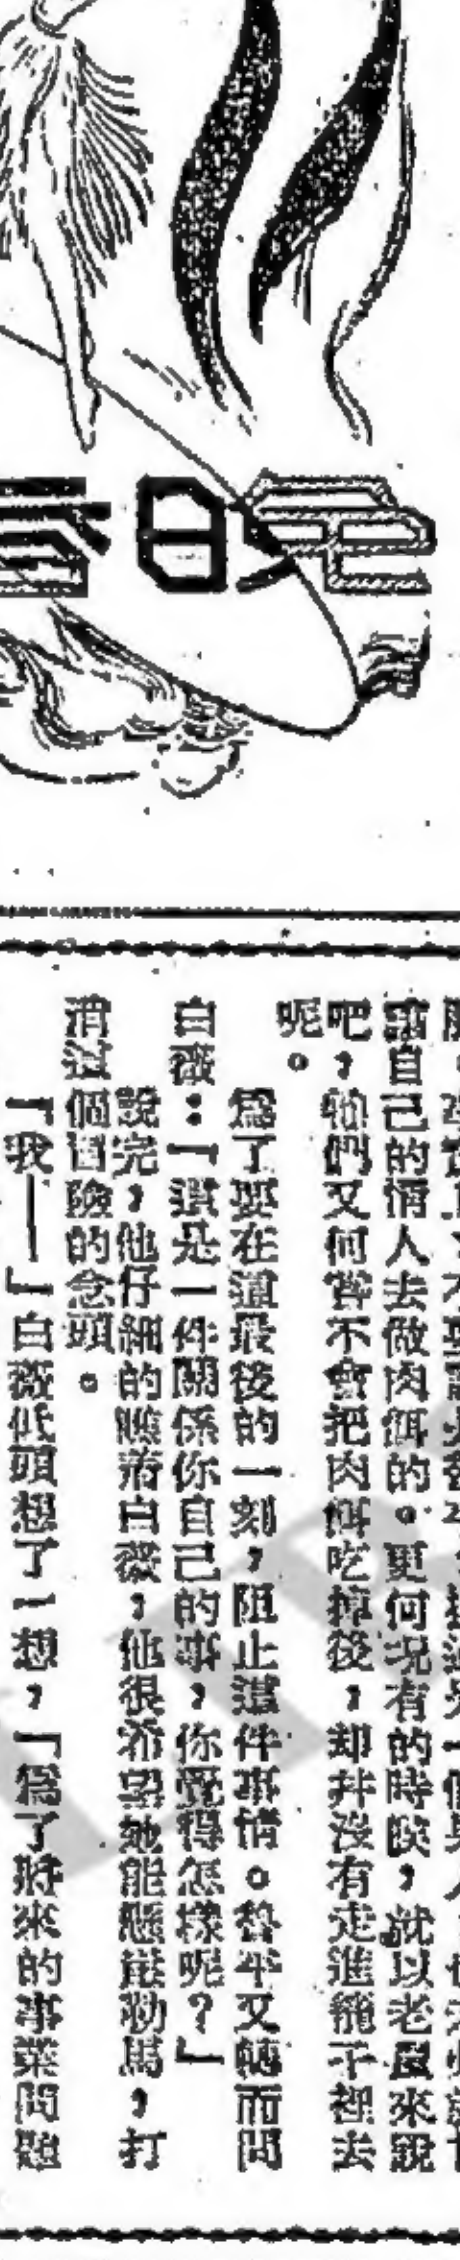 讓自己的情人去做肉餌的。更何况有的時候，就以老鼠來說
吧，牠們又何嘗不會把肉餌吃掉後，却并沒有走進籠子裡去
呢。
爲了要在這最後的一刻，阻止這件事情。魯平又轉而問
白薇：「這是一件關係你自己的事，你覺得怎樣呢？」
說完，他仔細的瞧着白薇，他很希望她能懸崖勒馬，打
消這個冒險的念頭。
「我——」白薇低頭想了一想，「爲了將來的事業問題